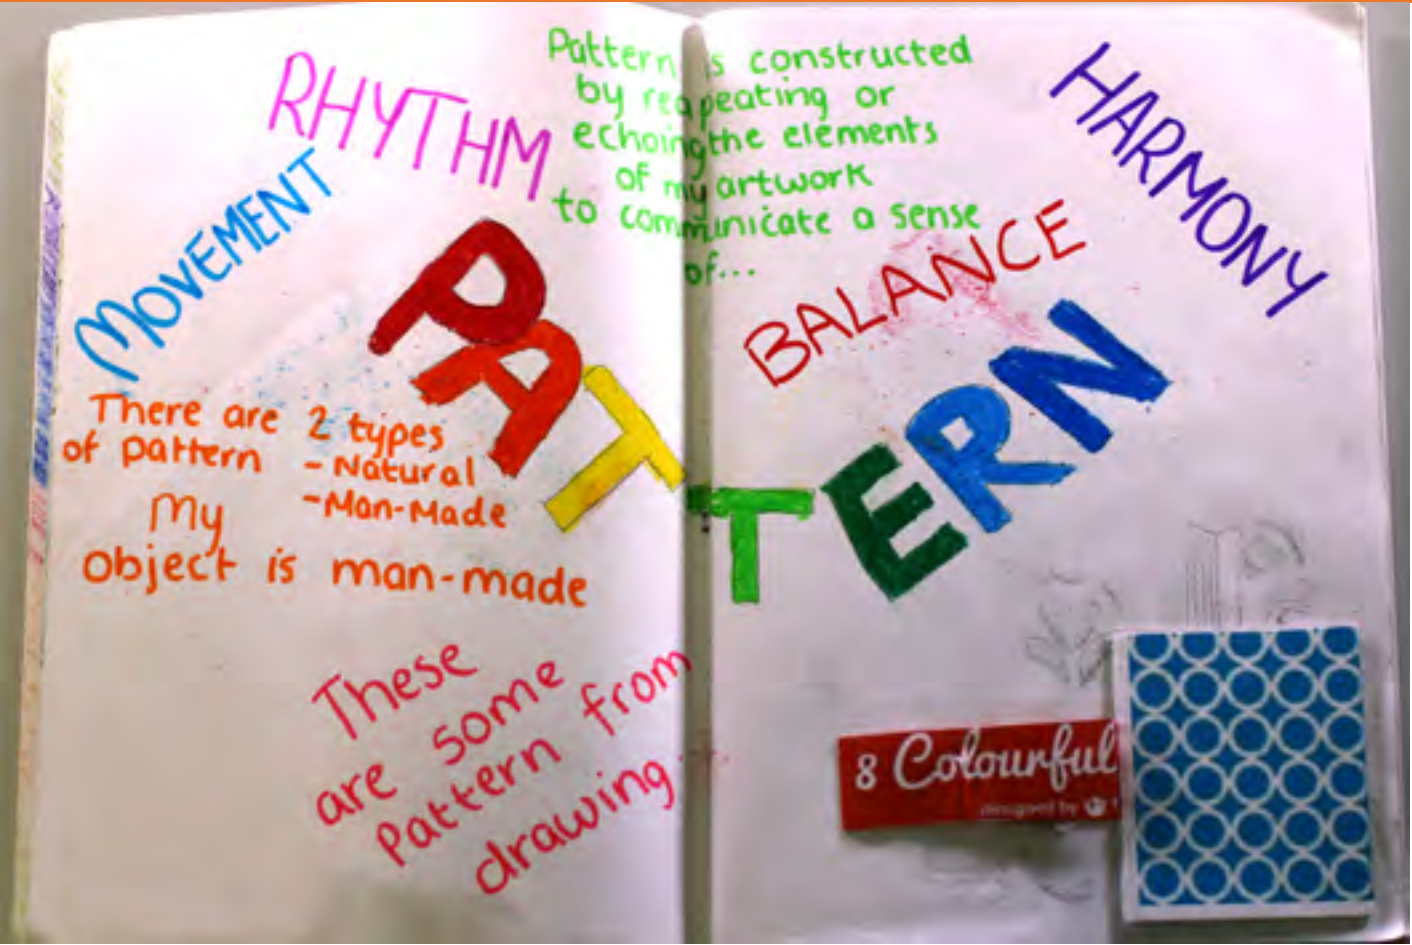 Pattern is constructed
by reapeating or
echoing the elements
of my artwork
to communicate a sense
of...
RHYTHM
MOVEMENT
HARMONY
BALANCE
PATTERN
There are 2 types
of pattern - Natural
-Man-Made
My
Object is man-made
These
are some
Pattern from
drawing...
8 Colourful
designed by